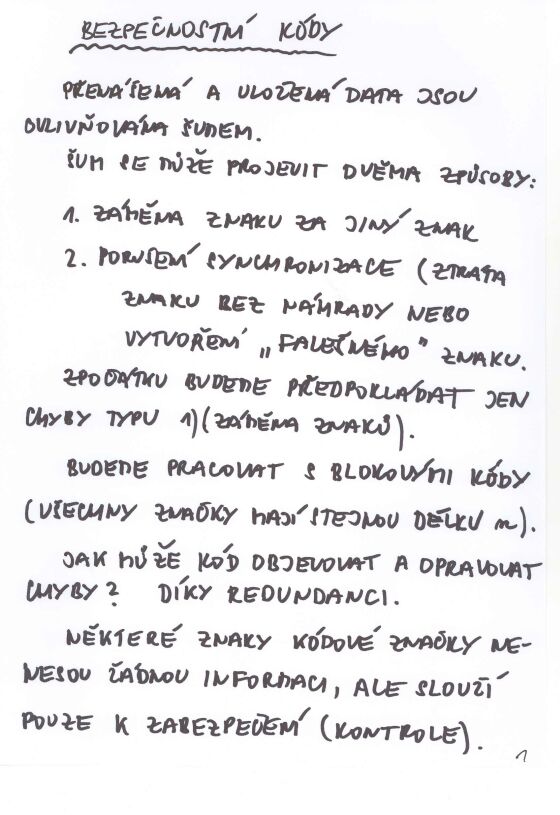 BEZPEČNOSTNÍ KÓDY
PŘENÁŠENÁ A ULOŽENÁ DATA JSOU
OVLIVŇOVÁNA ŠUMEM.
ŠUM SE MŮŽE PROJEVIT DVĚMA ZPŮSOBY:
1. ZÁMĚNA ZNAKU ZA JINÝ ZNAK
2. PORUŠENÍ SYNCHRONIZACE (ZTRÁTA
ZNAKU BEZ NÁHRADY NEBO
VYTVOŘENÍ „FALEŠNÉHO" ZNAKU.
ZPOČÁTKU BUDEME PŘEDPOKLÁDAT JEN
CHYBY TYPU 1) (ZÁMĚNA ZNAKŮ).
BUDEME PRACOVAT S BLOKOVÝMI KÓDY
(VŠECHNY ZNAČKY MAJÍ STEJNOU DÉLKU n).
JAK MŮŽE KÓD OBJEVOVAT A OPRAVOVAT
CHYBY? DÍKY REDUNDANCI.
NĚKTERÉ ZNAKY KÓDOVÉ ZNAČKY NE-
NESOU ŽÁDNOU INFORMACI, ALE SLOUŽÍ
POUZE K ZABEZPEČENÍ (KONTROLE).
1